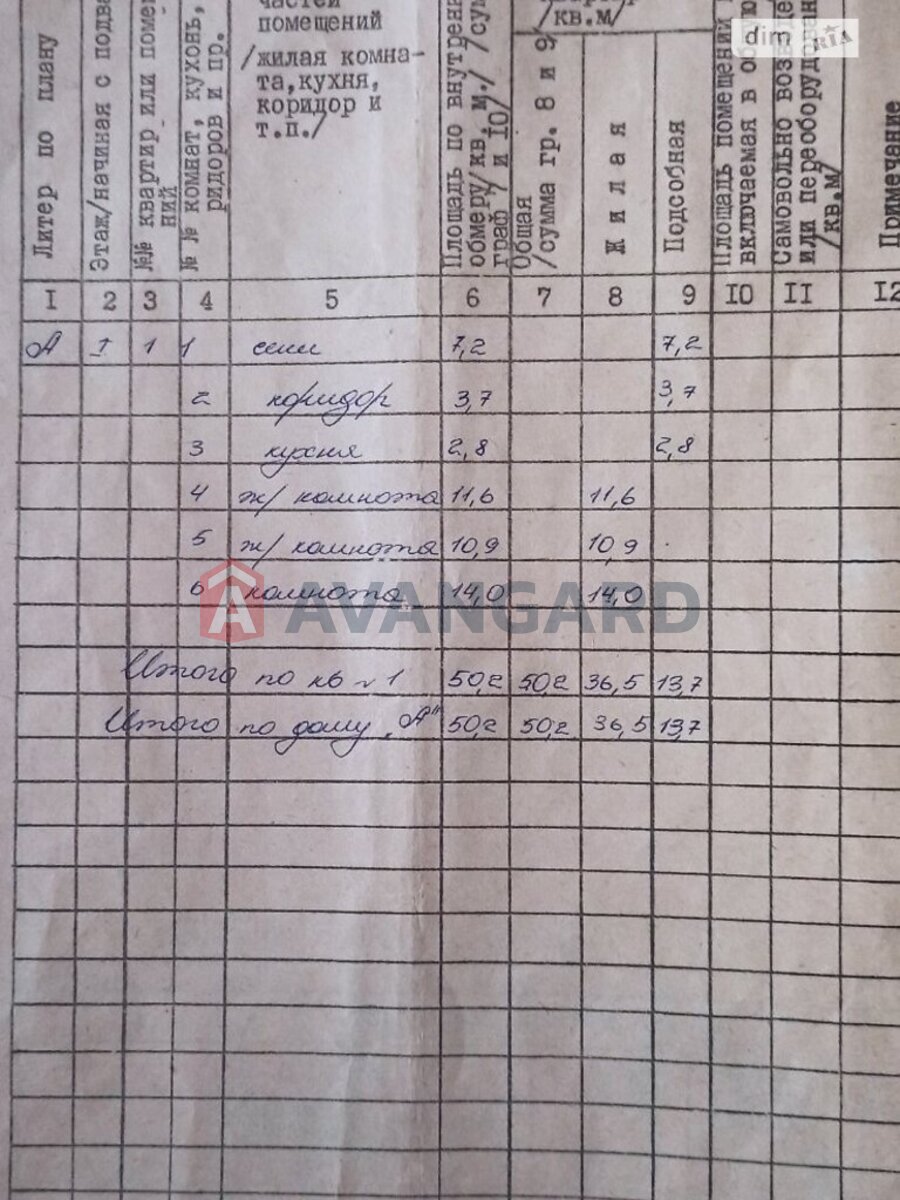 Литер по плану
Этаж/начиная с подва
№№ квартир или поме
ний
№ № комнат, кухонь,
ридоров и пр.
частей
помещений
/жилая комна-
та,кухня,
коридор и
т.п./
Площадь по внутренн
обмеру/кв. м./ /сум
граф 7 и 10/
/кв.м/
Общая
/сумма гр. 8 и 9/
Жилая
Подсобная
Площадь помещений
включаемая в
Самовольно
или переоборудован
/кв.м/
Примечание
dim RIA
1 2 3 4 5 6 7 8 9 10 11 12
А 1 1 1 сени 7,2 7,2
2 коридор 3,7 3,7
3 кухня 2,8 2,8
4 ж/ комната 11,6 11,6
5 ж/ комната 10,9 10,9
6 комната 14,0 14,0
AVANGARD
Итого по кв №1 50,2 50,2 36,5 13,7
Итого по дому „А" 50,2 50,2 36,5 13,7